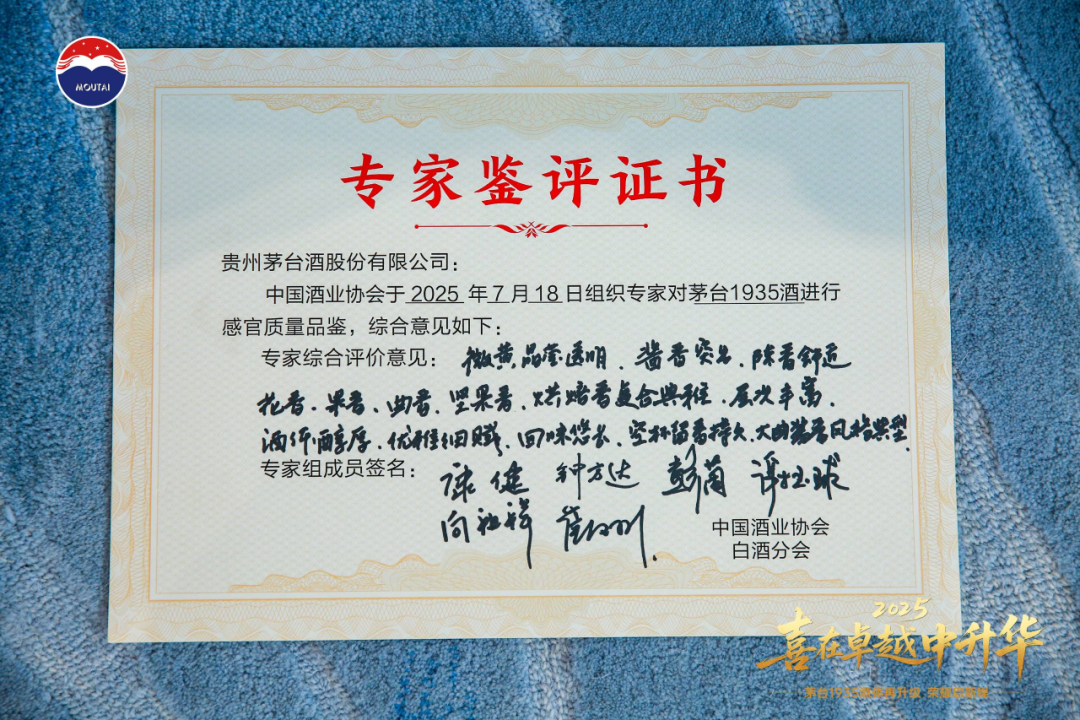 MOUTAI
专家鉴评证书
贵州茅台酒股份有限公司：
中国酒业协会于 2025 年 7 月 18 日组织专家对茅台1935酒进行
感官质量品鉴，综合意见如下：
专家综合评价意见：微黄晶莹透明、酱香突出、陈香舒适
花香、果香、曲香、坚果香、烘焙香复合典雅、层次丰富、
酒体醇厚、优雅细腻、回味悠长、空杯留香持久、大曲酱香风格典型.
专家组成员签名：
康健 钟方达
向祖祥
中国酒业协会
白酒分会
2025
喜在卓越中升华